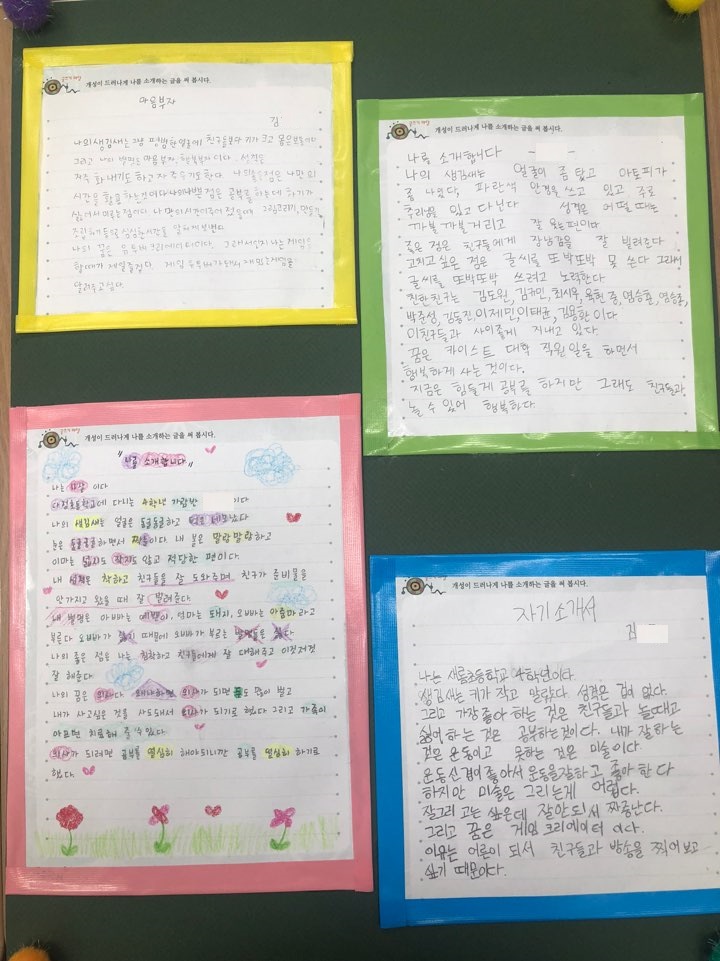 개성이 드러나게 나를 소개하는 글을 써 봅시다.
마음부자
김
나의생김새는 그냥 평범한얼굴에 친구들보다 키가 크고 몸은보통이다
그리고 나의 별명은 마음부자, 행복부자 이다. 성격은
저주 화내기도 하고 자주 수기도 한다. 나의좋은점은 나만의
시간을 활용하는것이다 나의나쁜 점은 공부를 하는데 하기가
싫어서 미루는점이다. 나만의시간이주어 졌을때에 그림그리기, 만들기
조립하기등으로 심심한시간을 알차게보낸다.
나의 꿈은 유튜버 크리에이터이다. 그래서인지 나는 게임을
할때가 제일즐겁다. 제일 유튜버가되어 재밌는게임을
알려주고싶다.
개성이 드러나게 나를 소개하는 글을 써 봅시다.
나를 소개합니다
나의 생김새는 얼굴이 좀 탔고 아토피가
좀 나있다, 파란색 안경을 쓰고 있고 주로
추리닝을 입고 다닌다 성격은 어떨 때는
까불 까불거리고 잘 웃는편이다
좋은 점은 친구들에게 장난감을 잘 빌려준다
고치고 싶은 점은 글씨를 또박또박 못 쓴다 그래서
글씨를 또박또박 쓰려고 노력한다.
친한친구는 김도원, 김규민, 최시우, 육현중, 염승훈, 염승종,
박준성, 김동진, 이제민, 이태윤, 김용환이다.
이친구들과 사이좋게 지내고 있다.
꿈은 카이스트 대학 직원일을 하면서
행복하게 사는 것이다.
지금은 힘들게 공부를 하지만 그래도 친구들과
놀 수 있어 행복하다.
개성이 드러나게 나를 소개하는 글을 써 봅시다.
"나를 소개합니다"
나는 사람 이다
다정초등학교에 다니는 4학년 가람반 이다
나의 생김새는 얼굴은 동글동글하고 턱은 네모났다
눈은 동글동글하면서 찢눈이다. 내 볼은 말랑말랑하고
이마는 넓지도 작지도 않고 적당한 편이다.
내 성격은 착하고 친구들을 잘 도와주며 친구가 준비물을
안가지고 왔을 때 잘 빌려준다.
내 별명은 아빠는 예쁜이, 엄마는 돼지, 오빠는 아줌마라고
부른다 오빠가 싫기 때문에 오빠가 부르는 별명들은 싫다
나의 좋은 점은 나는 침착하고 친구들에게 잘 대해주고 이것저것
잘 해준다.
나의 꿈은 의사다 왜냐하면 의사가 되면 돈도 많이 벌고
내가 사고싶은 것을 사도돼서 의사가 되기로 했다 그리고 가족이
아프면 치료해 줄 수 있다.
의사가 되려면 공부를 열심히 해야되니깐 공부를 열심히 하기로
했다.
개성이 드러나게 나를 소개하는 글을 써 봅시다.
자기소개서
김
나는 새움초등학교 4학년이다.
생김새는 키가 작고 말랐다. 성격은 겁이 없다.
그리고 가장 좋아 하는 것은 친구들과 놀때고
싫어 하는 것은 공부하는것이다. 내가 잘하는
것은 운동이고 못하는 것은 미술이다.
운동신경이좋아서 운동을잘하고 좋아 한다
하지만 미술은 그리는게 어렵다.
잘그리고는 싶은데 잘안되서 짜증난다.
그리고 꿈은 게임 크리에이터 이다.
이유는 어른이 되서 친구들과 방송을 찍어보고
싶기 때문이다.